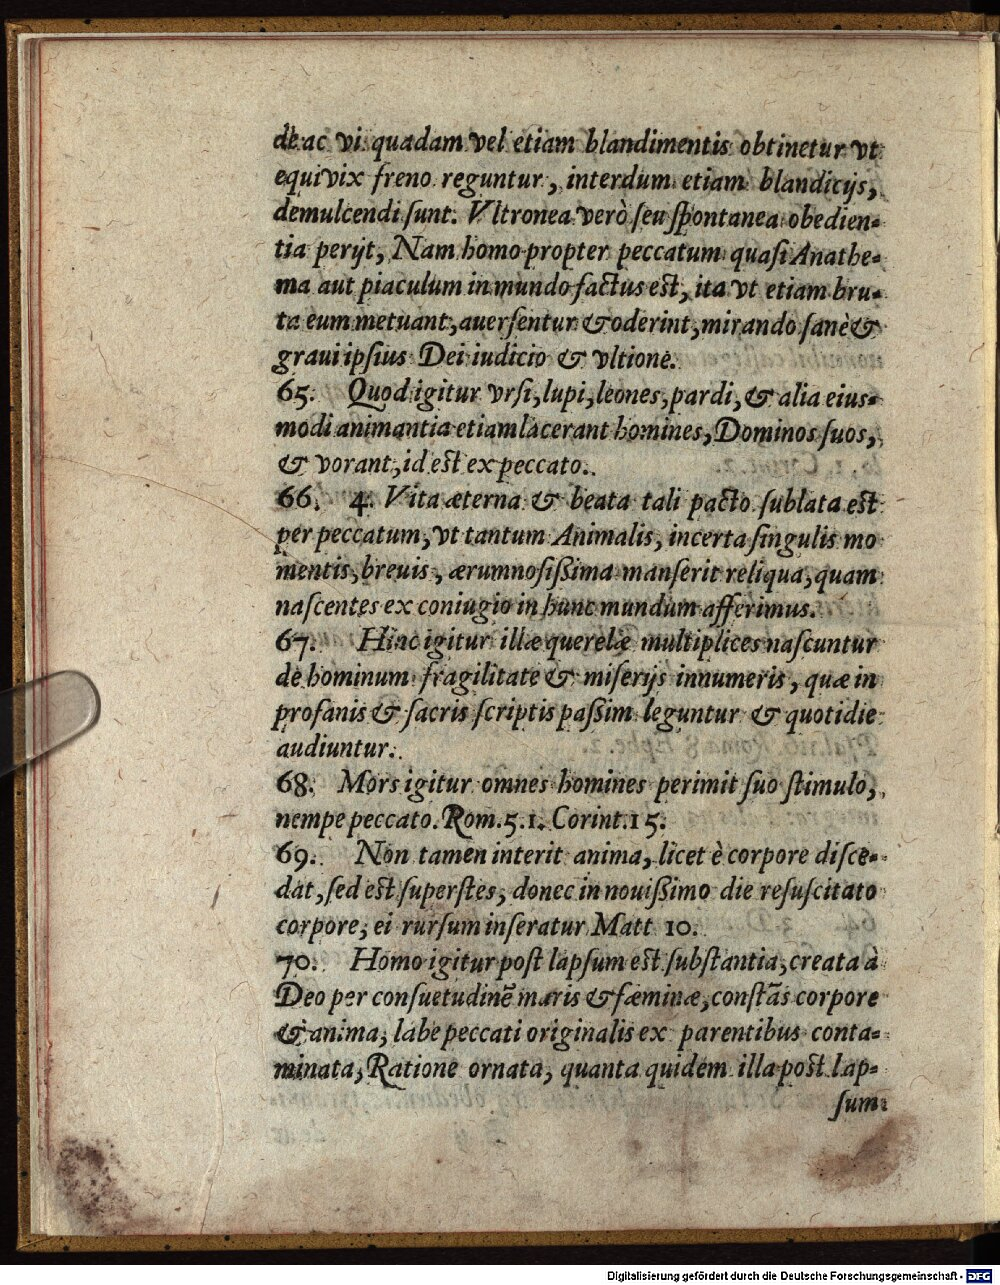 de ac vi quadam vel etiam blandimentis obtinetur vt
equi vix freno reguntur, interdum etiam blandicijs,
demulcendi ſunt. Vltronea verò ſeu ſpontanea obedien⸗
tia perijt, Nam homo propter peccatum quaſi Anathe⸗
ma aut piaculum in mundo factus eſt, ita vt etiam bru⸗
ta eum metuant, auerſentur & oderint, mirando ſanè &
graui ipſius Dei iudicio & vltione.
65. Quod igitur vrſi, lupi, leones, pardi, & alia eius⸗
modi animantia etiam lacerant homines, Dominos ſuos,
& vorant, id eſt ex peccato.
66. 4. Vita æterna & beata tali pacto ſublata eſt
per peccatum, vt tantum Animalis, incerta ſingulis mo
mentis, breuis, ærumnoſißima manſerit reliqua, quam
naſcentes ex coniugio in hunc mundum afferimus.
67. Hinc igitur illæ querelæ multiplices naſcuntur
de hominum fragilitate & miſerijs innumeris, quæ in
profanis & ſacris ſcriptis paßim leguntur & quotidie
audiuntur.
68. Mors igitur omnes homines perimit ſuo ſtimulo,
nempe peccato. Rom. 5. 1. Corint. 15.
69. Non tamen interit anima, licet è corpore diſce⸗
dat, ſed eſt ſuperſtes, donec in nouißimo die reſuſcitato
corpore, ei rurſum inſeratur Matt 10.
70. Homo igitur poſt lapſum eſt ſubſtantia, creata à
Deo per conſuetudinē maris & fæminæ, conſtãs corpore
& anima, labe peccati originalis ex parentibus conta⸗
minata, Ratione ornata, quanta quidem illa poſt lap⸗
ſum
Digitalisierung gefördert durch die Deutsche Forschungsgemeinschaft - DFG